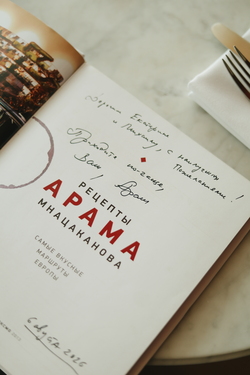 Дорогим Екатерине
и Никите, с наилучшими
Пожеланиями!
Приходите по-чаще,
Ваш, Арам
РЕЦЕПТЫ
АРАМА
МНАЦАКАНОВА
САМЫЕ ВКУСНЫЕ
МАРШРУТЫ
ЕВРОПЫ